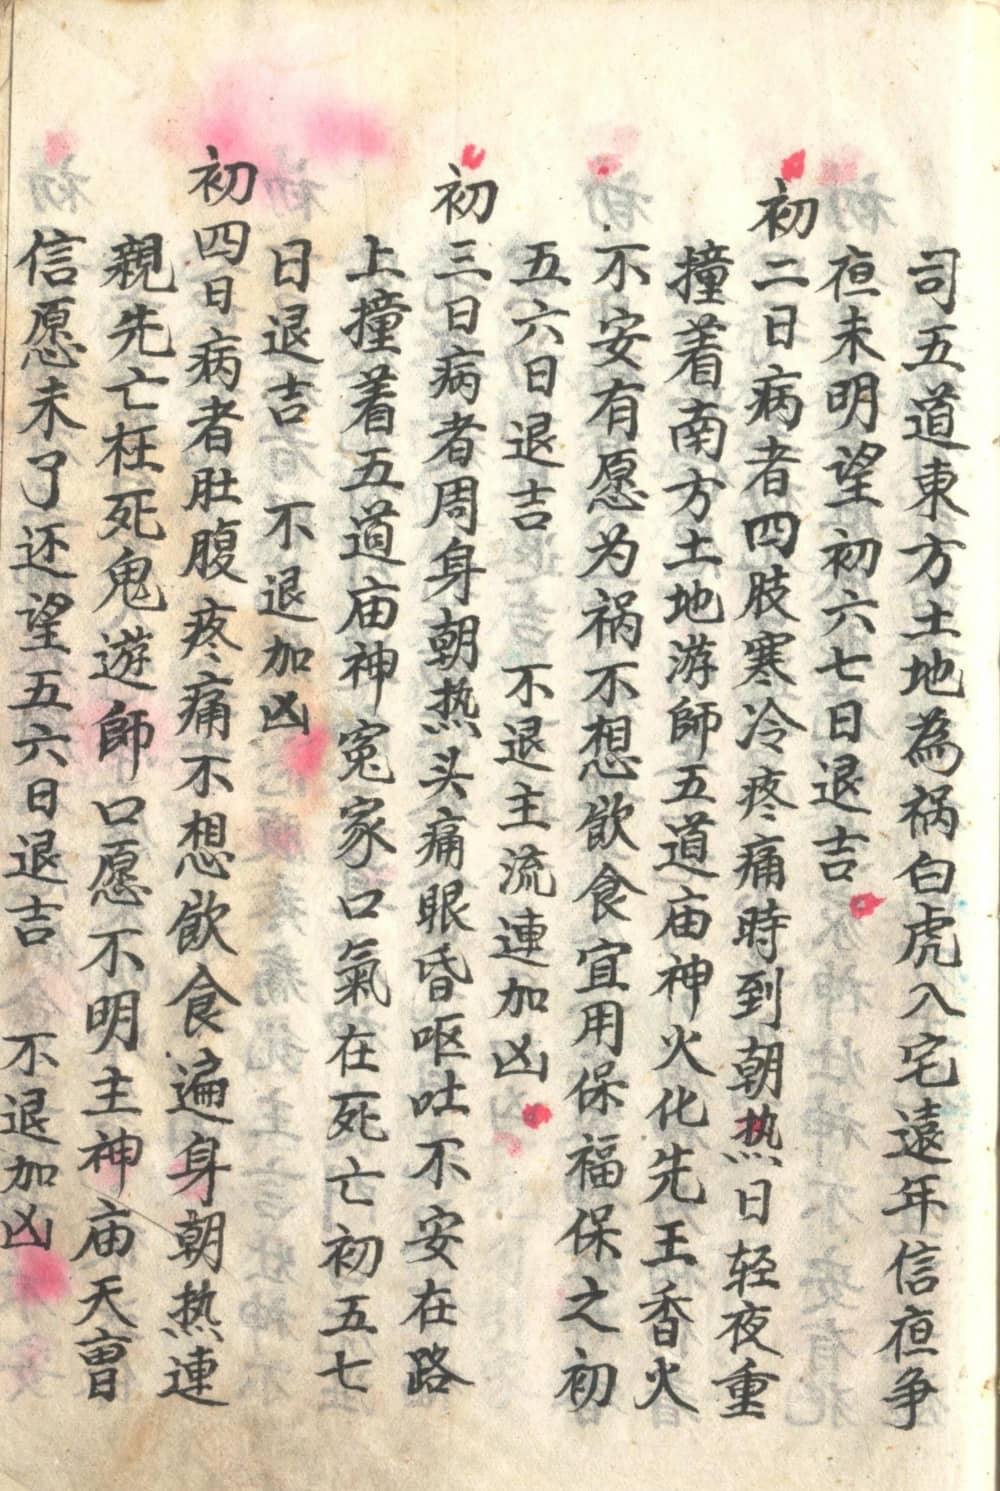 司五道東方土地為祸白虎入宅遠年信亱争
亱未明望初六七日退吉
初二日病者四肢寒冷疼痛時到朝热日轻夜重
撞着南方土地游師五道庙神火化先王香火
不安有愿为祸不想飲食宜用保福保之初
五六日退吉 不退主流連加凶
初三日病者周身朝热头痛眼昏呕吐不安在路
上撞着五道庙神寃家口氣在死亡初五七
日退吉 不退加凶
初四日病者肚腹疼痛不想飲食遍身朝热連
親先亡枉死鬼遊師口愿不明主神庙天曹
信愿未了还望五六日退吉 不退加凶